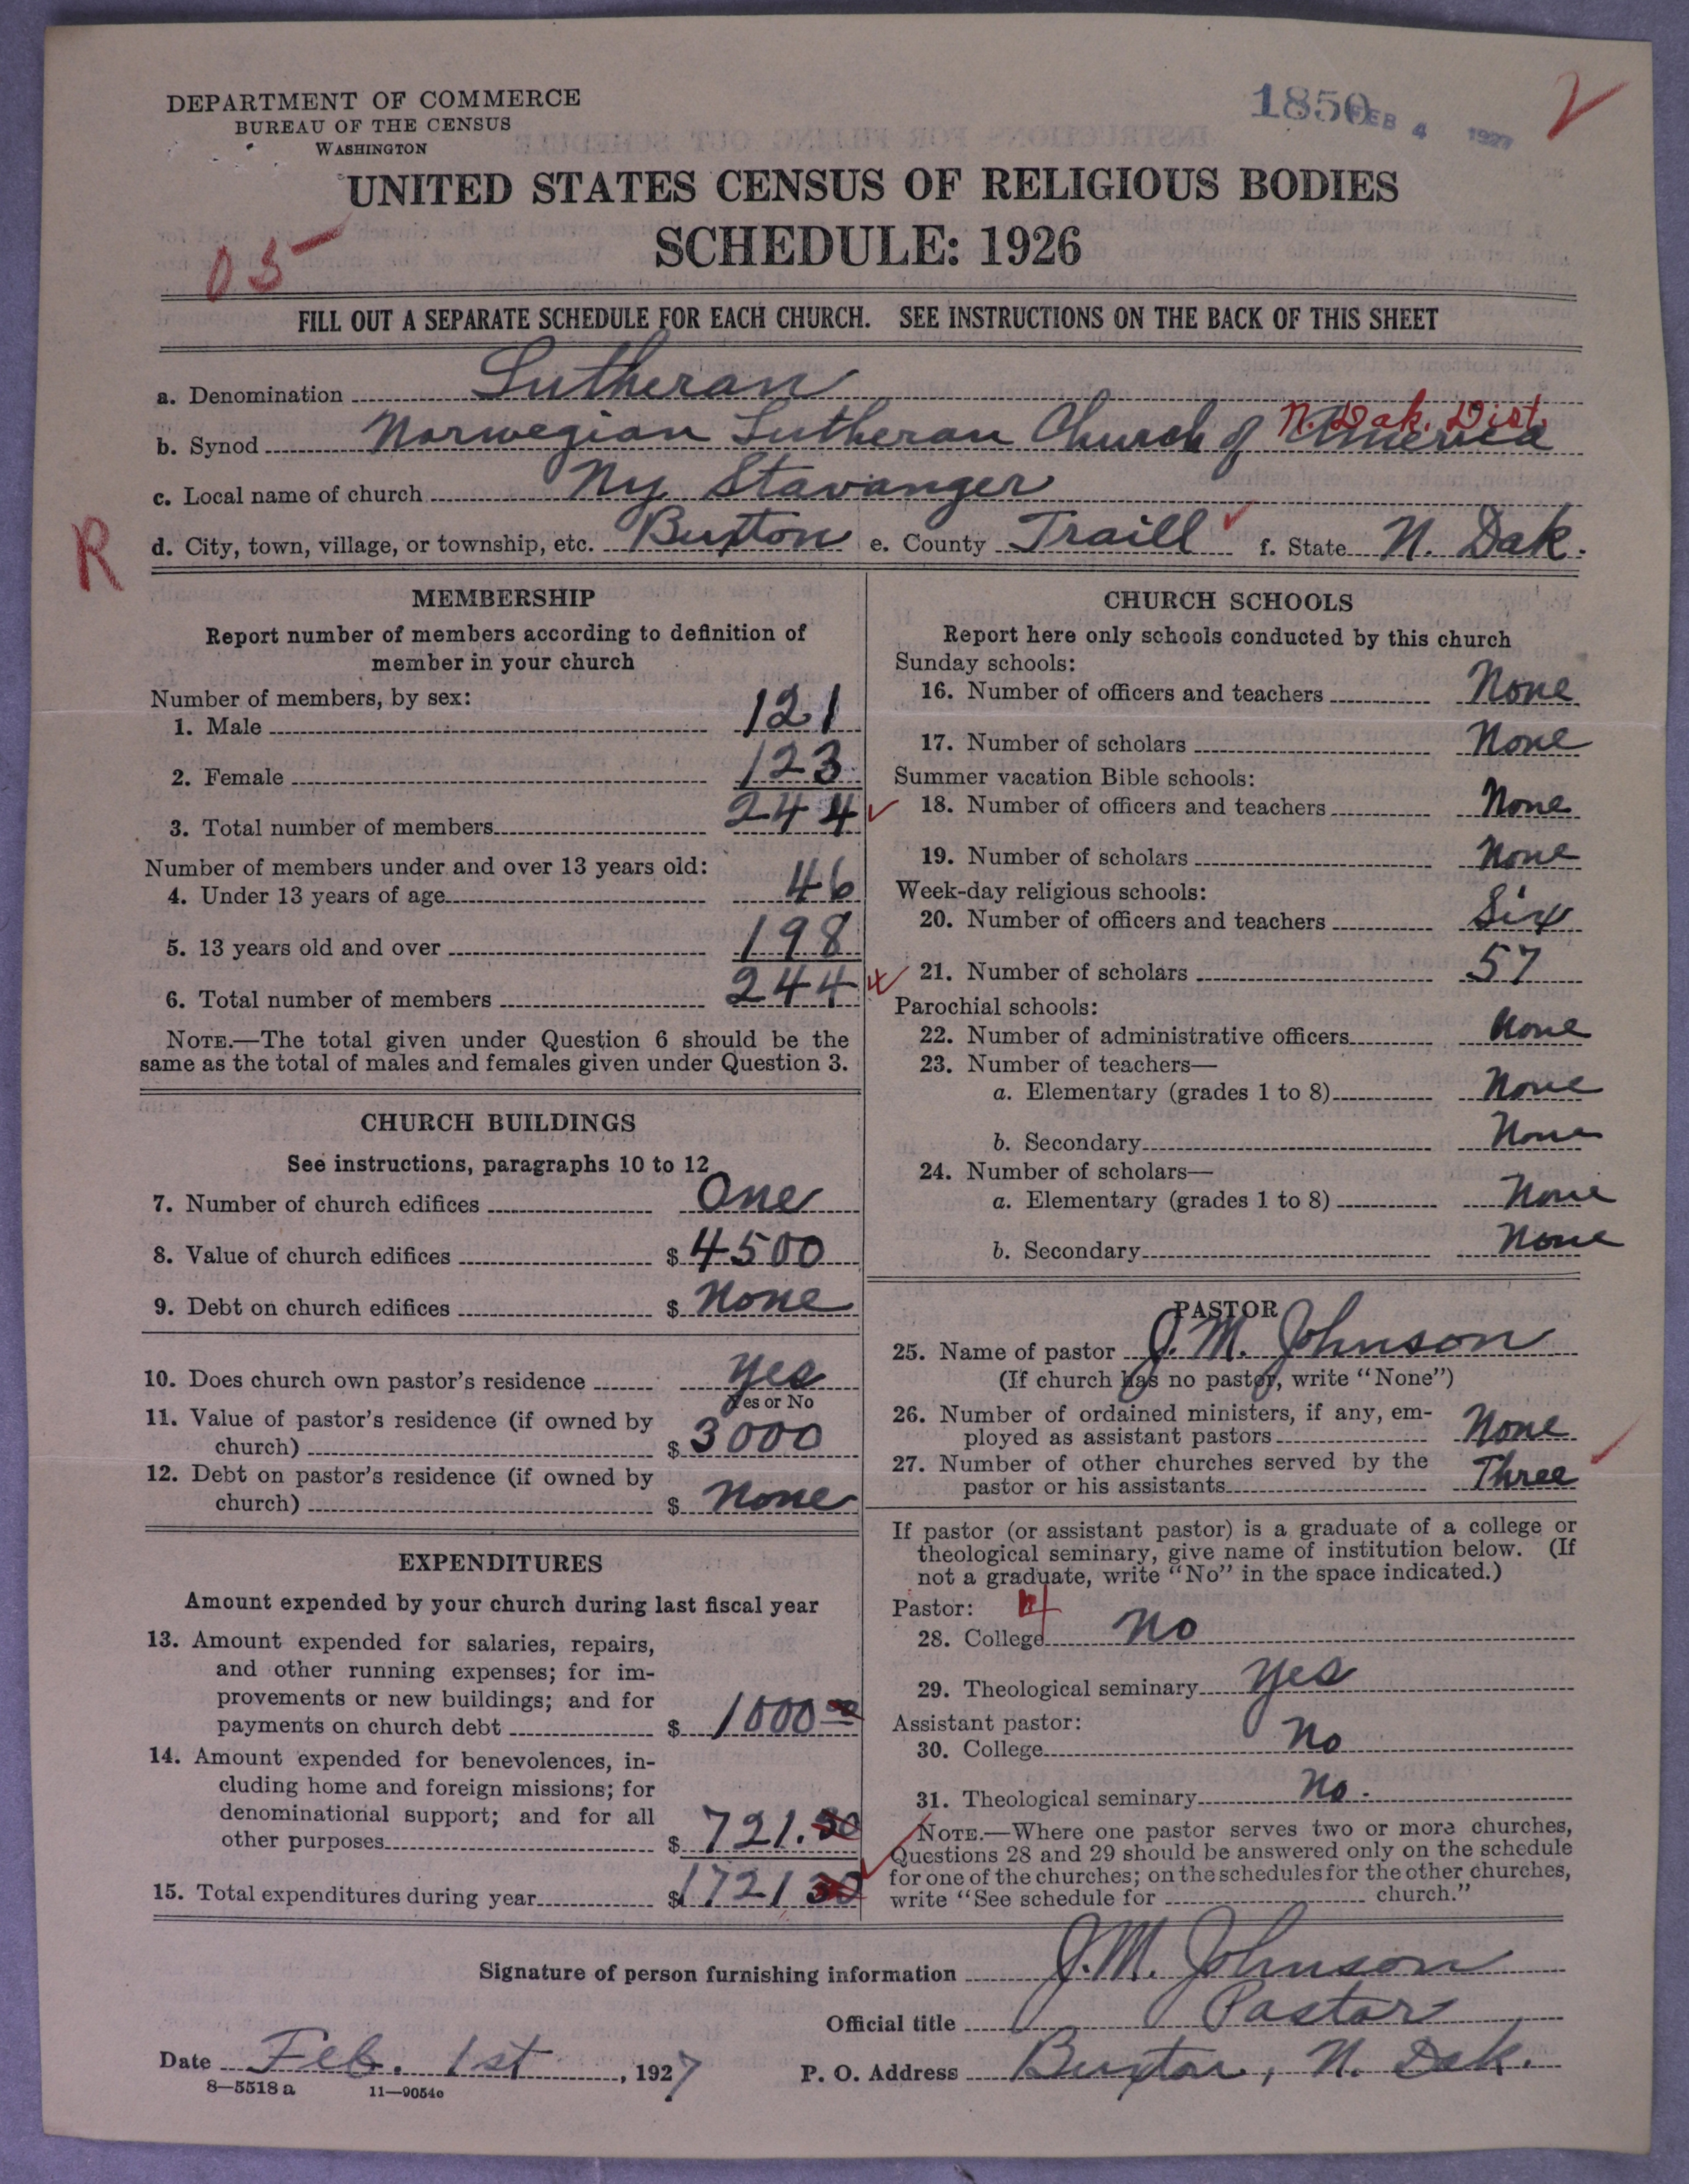 DEPARTMENT OF COMMERCE
BUREAU OF THE CENSUS
WASHINGTON
1850 FEB 4 1927
2
UNITED STATES CENSUS OF RELIGIOUS BODIES
SCHEDULE: 1926
05
FILL OUT A SEPARATE SCHEDULE FOR EACH CHURCH. SEE INSTRUCTIONS ON THE BACK OF THIS SHEET
a. Denomination Lutheran
N. Dak. Dist.
b. Synod Norwegian Lutheran Church of America
c. Local name of church Ny Stavanger
R
d. City, town, village, or township, etc. Buxton e. County Traill f. State N. Dak.
MEMBERSHIP
Report number of members according to definition of
member in your church
Number of members, by sex:
1. Male 121
2. Female 123
3. Total number of members 244
Number of members under and over 13 years old:
4. Under 13 years of age 46
5. 13 years old and over 198
6. Total number of members 244
NOTE.—The total given under Question 6 should be the
same as the total of males and females given under Question 3.
CHURCH BUILDINGS
See instructions, paragraphs 10 to 12
7. Number of church edifices One
8. Value of church edifices $ 4500
9. Debt on church edifices $ None
10. Does church own pastor's residence Yes
Yes or No
11. Value of pastor's residence (if owned by
church) $ 3000
12. Debt on pastor's residence (if owned by
church) $ None
EXPENDITURES
Amount expended by your church during last fiscal year
13. Amount expended for salaries, repairs,
and other running expenses; for im-
provements or new buildings; and for
payments on church debt $ 1000 00
14. Amount expended for benevolences, in-
cluding home and foreign missions; for
denominational support; and for all
other purposes $ 721.30
15. Total expenditures during year $ 1721 30
CHURCH SCHOOLS
Report here only schools conducted by this church
Sunday schools:
16. Number of officers and teachers None
17. Number of scholars None
Summer vacation Bible schools:
18. Number of officers and teachers None
19. Number of scholars None
Week-day religious schools:
20. Number of officers and teachers Six
21. Number of scholars 57
Parochial schools:
22. Number of administrative officers None
23. Number of teachers—
a. Elementary (grades 1 to 8) None
b. Secondary None
24. Number of scholars—
a. Elementary (grades 1 to 8) None
b. Secondary None
PASTOR
25. Name of pastor J. M. Johnson
(If church has no pastor, write "None")
26. Number of ordained ministers, if any, em-
ployed as assistant pastors None
27. Number of other churches served by the
pastor or his assistants Three
If pastor (or assistant pastor) is a graduate of a college or
theological seminary, give name of institution below. (If
not a graduate, write "No" in the space indicated.)
Pastor:
28. College No
29. Theological seminary Yes
Assistant pastor:
30. College No
31. Theological seminary No.
NOTE.—Where one pastor serves two or more churches,
Questions 28 and 29 should be answered only on the schedule
for one of the churches; on the schedules for the other churches,
write "See schedule for church."
Signature of person furnishing information J. M. Johnson
Official title Pastor
Date Feb. 1st, 1927 P. O. Address Buxton, N. Dak.
8—5518 a 11—9054c